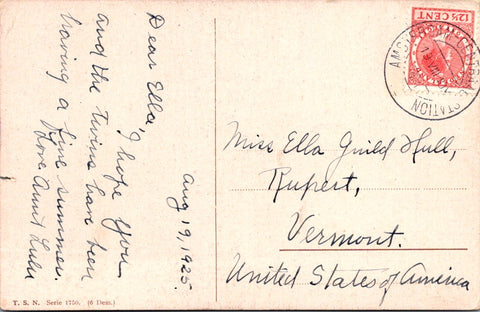 Aug 19, 1925.
Dear Ella,
I hope you
and the twins have been
having a fine summer.
Love Aunt Lulu
T. S. N. Serie 1750. (6 Dess.)
12½ CENT
STATION
Miss Ella Guild Hull,
Rupert,
Vermont.
United States of America